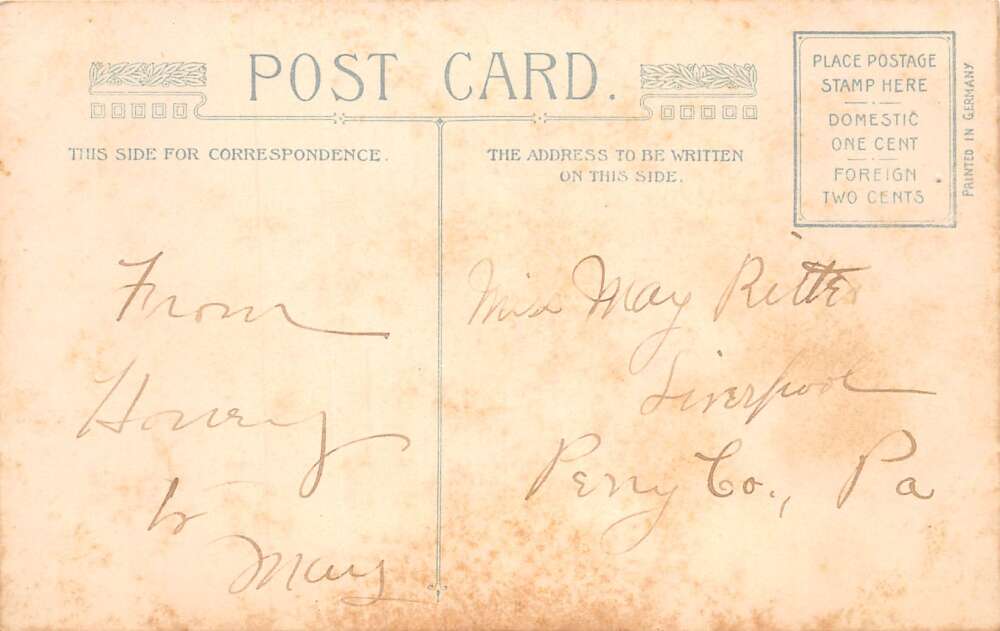 POST CARD.
THIS SIDE FOR CORRESPONDENCE.
THE ADDRESS TO BE WRITTEN
ON THIS SIDE.
PLACE POSTAGE
STAMP HERE
DOMESTIC
ONE CENT
FOREIGN
TWO CENTS
PRINTED IN GERMANY
From
to
Miss May
Liverpool
Perry Co., Pa